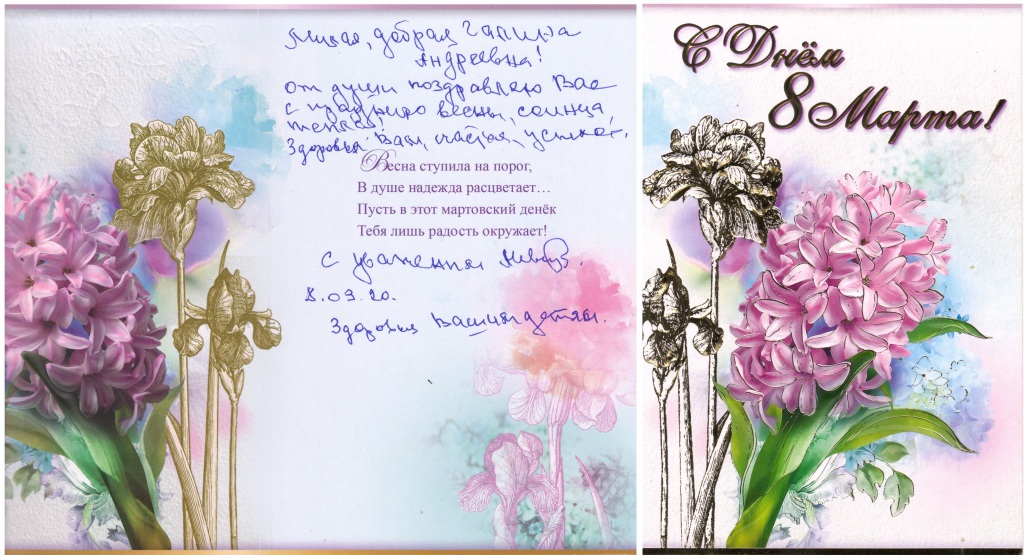 Милая, добрая Галина
Андреевна!
от души поздравляю Вас
с праздником весны, солнца,
тепла!
Здоровья Вам, счастья, успехов.
Весна ступила на порог,
В душе надежда расцветает…
Пусть в этот мартовский денёк
Тебя лишь радость окружает!
С уважением
8.03.20.
Здоровья Вашим детям.
С Днём
8 Марта!